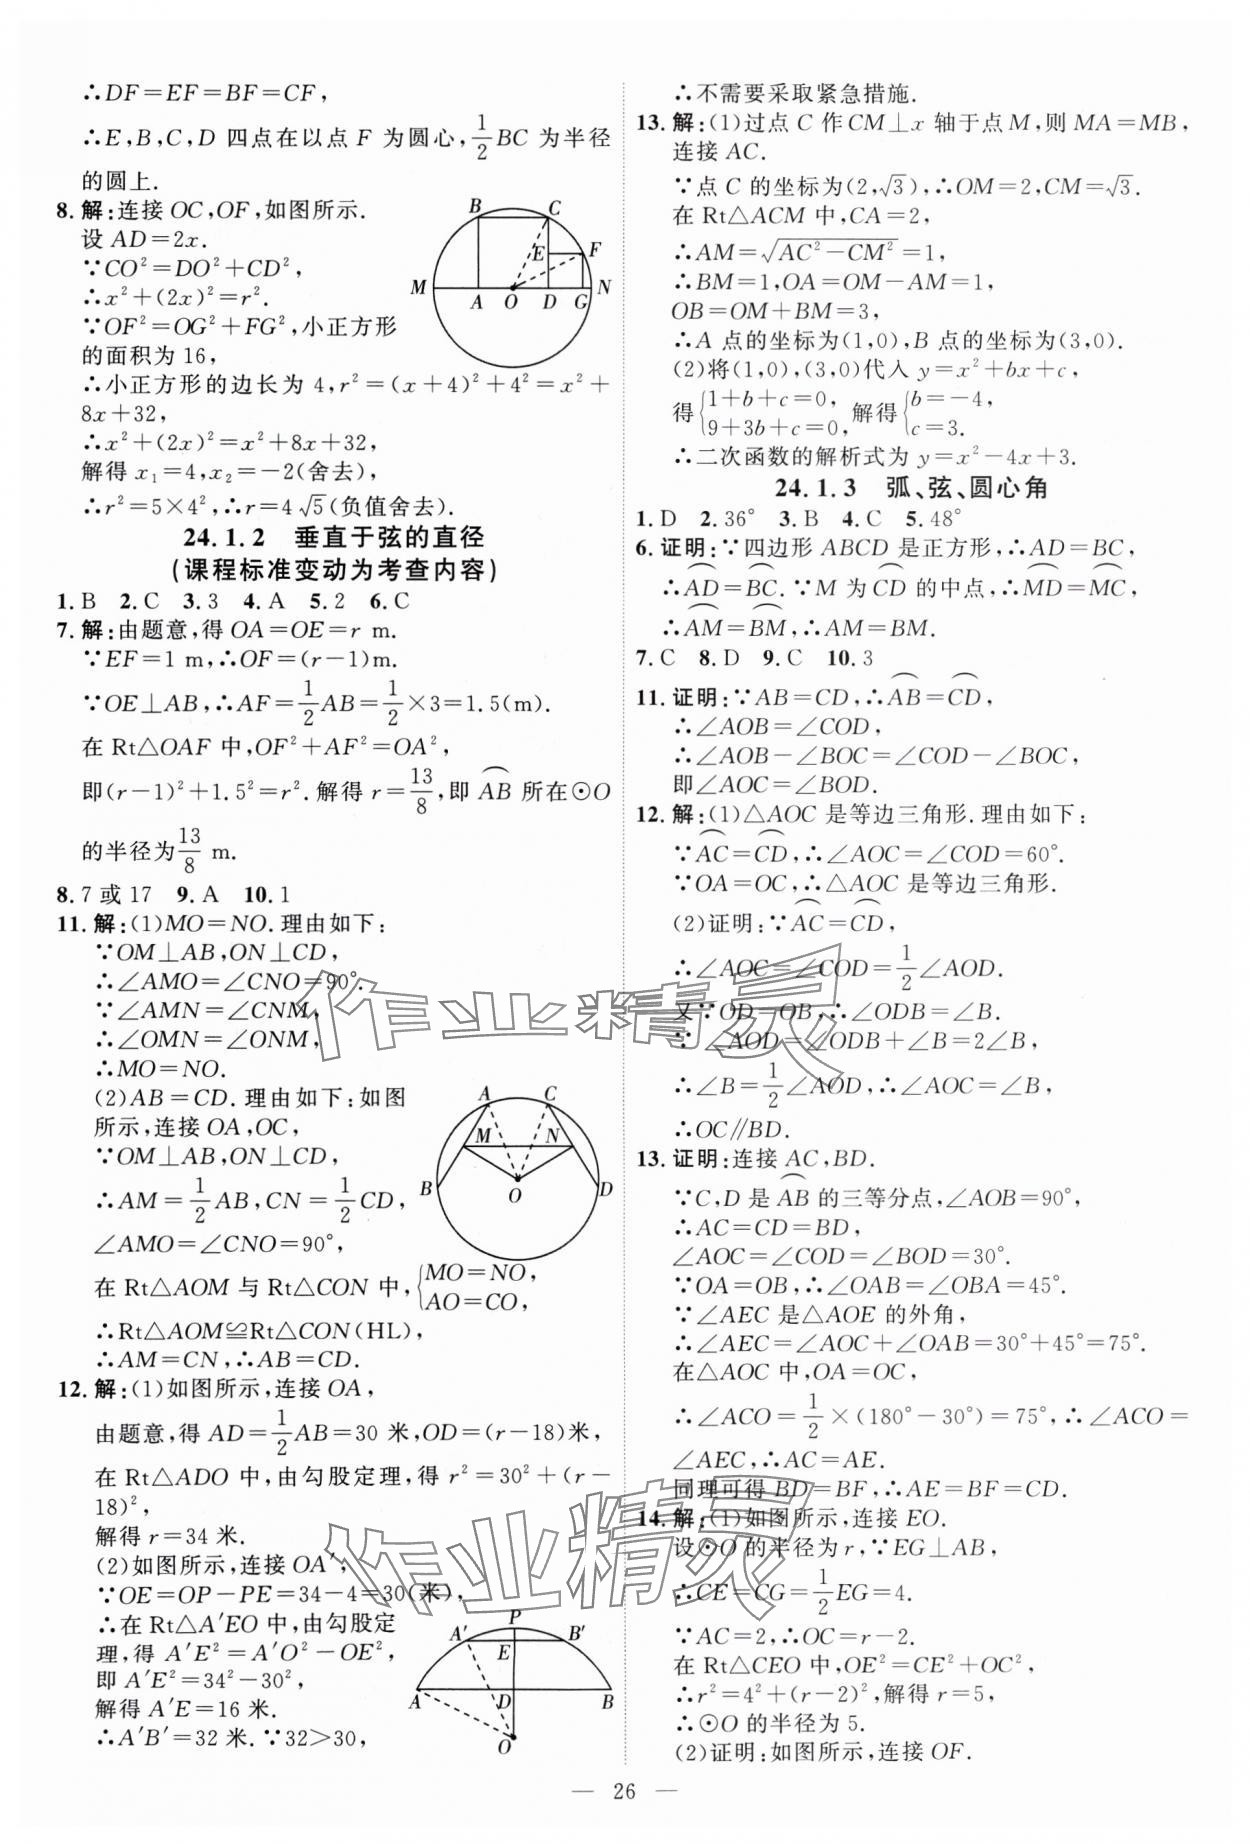 ∴DF=EF=BF=CF,
∴E,B,C,D 四点在以点 F 为圆心,1/2 BC 为半径
的圆上.
8. 解:连接 OC,OF,如图所示.
设 AD=2x.
∵CO²=DO²+CD²,
∴x²+(2x)²=r².
∵OF²=OG²+FG²,小正方形
的面积为 16,
B C E F M A O D G N
∴小正方形的边长为 4,r²=(x+4)²+4²=x²+
8x+32,
∴x²+(2x)²=x²+8x+32,
解得 x₁=4,x₂=-2(舍去),
∴r²=5×4²,∴r=4√5(负值舍去).
24.1.2 垂直于弦的直径
(课程标准变动为考查内容)
1. B 2. C 3. 3 4. A 5. 2 6. C
7. 解:由题意,得 OA=OE=r m.
∵EF=1 m,∴OF=(r-1)m.
∵OE⊥AB,∴AF=1/2 AB=1/2×3=1.5(m).
在 Rt△OAF 中,OF²+AF²=OA²,
即(r-1)²+1.5²=r².解得 r=13/8,即 ⌒AB 所在⊙O
的半径为 13/8 m.
8. 7 或 17 9. A 10. 1
11. 解:(1)MO=NO.理由如下:
∵OM⊥AB,ON⊥CD,
∴∠AMO=∠CNO=90°.
∵∠AMN=∠CNM,
∴∠OMN=∠ONM,
∴MO=NO.
(2)AB=CD.理由如下:如图
所示,连接 OA,OC,
∵OM⊥AB,ON⊥CD,
∴AM=1/2 AB,CN=1/2 CD,
∠AMO=∠CNO=90°,
A C M N B O D
在 Rt△AOM 与 Rt△CON 中,{MO=NO,
AO=CO,
∴Rt△AOM≌Rt△CON(HL),
∴AM=CN,∴AB=CD.
12. 解:(1)如图所示,连接 OA,
由题意,得 AD=1/2 AB=30 米,OD=(r-18)米,
在 Rt△ADO 中,由勾股定理,得 r²=30²+(r-
18)²,
解得 r=34 米.
(2)如图所示,连接 OA′,
∵OE=OP-PE=34-4=30(米),
∴在 Rt△A′EO 中,由勾股定
理,得 A′E²=A′O²-OE²,
即 A′E²=34²-30²,
解得 A′E=16 米.
∴A′B′=32 米.∵32>30,
P A′ B′ E A D B O
∴不需要采取紧急措施.
13. 解:(1)过点 C 作 CM⊥x 轴于点 M,则 MA=MB,
连接 AC.
∵点 C 的坐标为(2,√3),∴OM=2,CM=√3.
在 Rt△ACM 中,CA=2,
∴AM=√(AC²-CM²)=1,
∴BM=1,OA=OM-AM=1,
OB=OM+BM=3,
∴A 点的坐标为(1,0),B 点的坐标为(3,0).
(2)将(1,0),(3,0)代入 y=x²+bx+c,
得{1+b+c=0, 9+3b+c=0, 解得{b=-4, c=3.
∴二次函数的解析式为 y=x²-4x+3.
24.1.3 弧、弦、圆心角
1. D 2. 36° 3. B 4. C 5. 48°
6. 证明:∵四边形 ABCD 是正方形,∴AD=BC,
∴⌒AD=⌒BC.∵M 为⌒CD 的中点,∴⌒MD=⌒MC,
∴⌒AM=⌒BM,∴AM=BM.
7. C 8. D 9. C 10. 3
11. 证明:∵AB=CD,∴⌒AB=⌒CD,
∴∠AOB=∠COD,
∴∠AOB-∠BOC=∠COD-∠BOC,
即∠AOC=∠BOD.
12. 解:(1)△AOC 是等边三角形.理由如下:
∵⌒AC=⌒CD,∴∠AOC=∠COD=60°.
∵OA=OC,∴△AOC 是等边三角形.
(2)证明:∵⌒AC=⌒CD,
∴∠AOC=∠COD=1/2∠AOD.
又∵OD=OB,∴∠ODB=∠B.
∵∠AOD=∠ODB+∠B=2∠B,
∴∠B=1/2∠AOD,∴∠AOC=∠B,
∴OC∥BD.
13. 证明:连接 AC,BD.
∵C,D 是 ⌒AB 的三等分点,∠AOB=90°,
∴AC=CD=BD,
∠AOC=∠COD=∠BOD=30°.
∵OA=OB,∴∠OAB=∠OBA=45°.
∵∠AEC 是△AOE 的外角,
∴∠AEC=∠AOC+∠OAB=30°+45°=75°.
在△AOC 中,OA=OC,
∴∠ACO=1/2×(180°-30°)=75°,∴∠ACO=
∠AEC,∴AC=AE.
同理可得 BD=BF,∴AE=BF=CD.
14. 解:(1)如图所示,连接 EO.
设⊙O 的半径为 r,∵EG⊥AB,
∴CE=CG=1/2 EG=4.
∵AC=2,∴OC=r-2.
在 Rt△CEO 中,OE²=CE²+OC²,
∴r²=4²+(r-2)²,解得 r=5,
∴⊙O 的半径为 5.
(2)证明:如图所示,连接 OF.
— 26 —
作业精灵
作业精灵